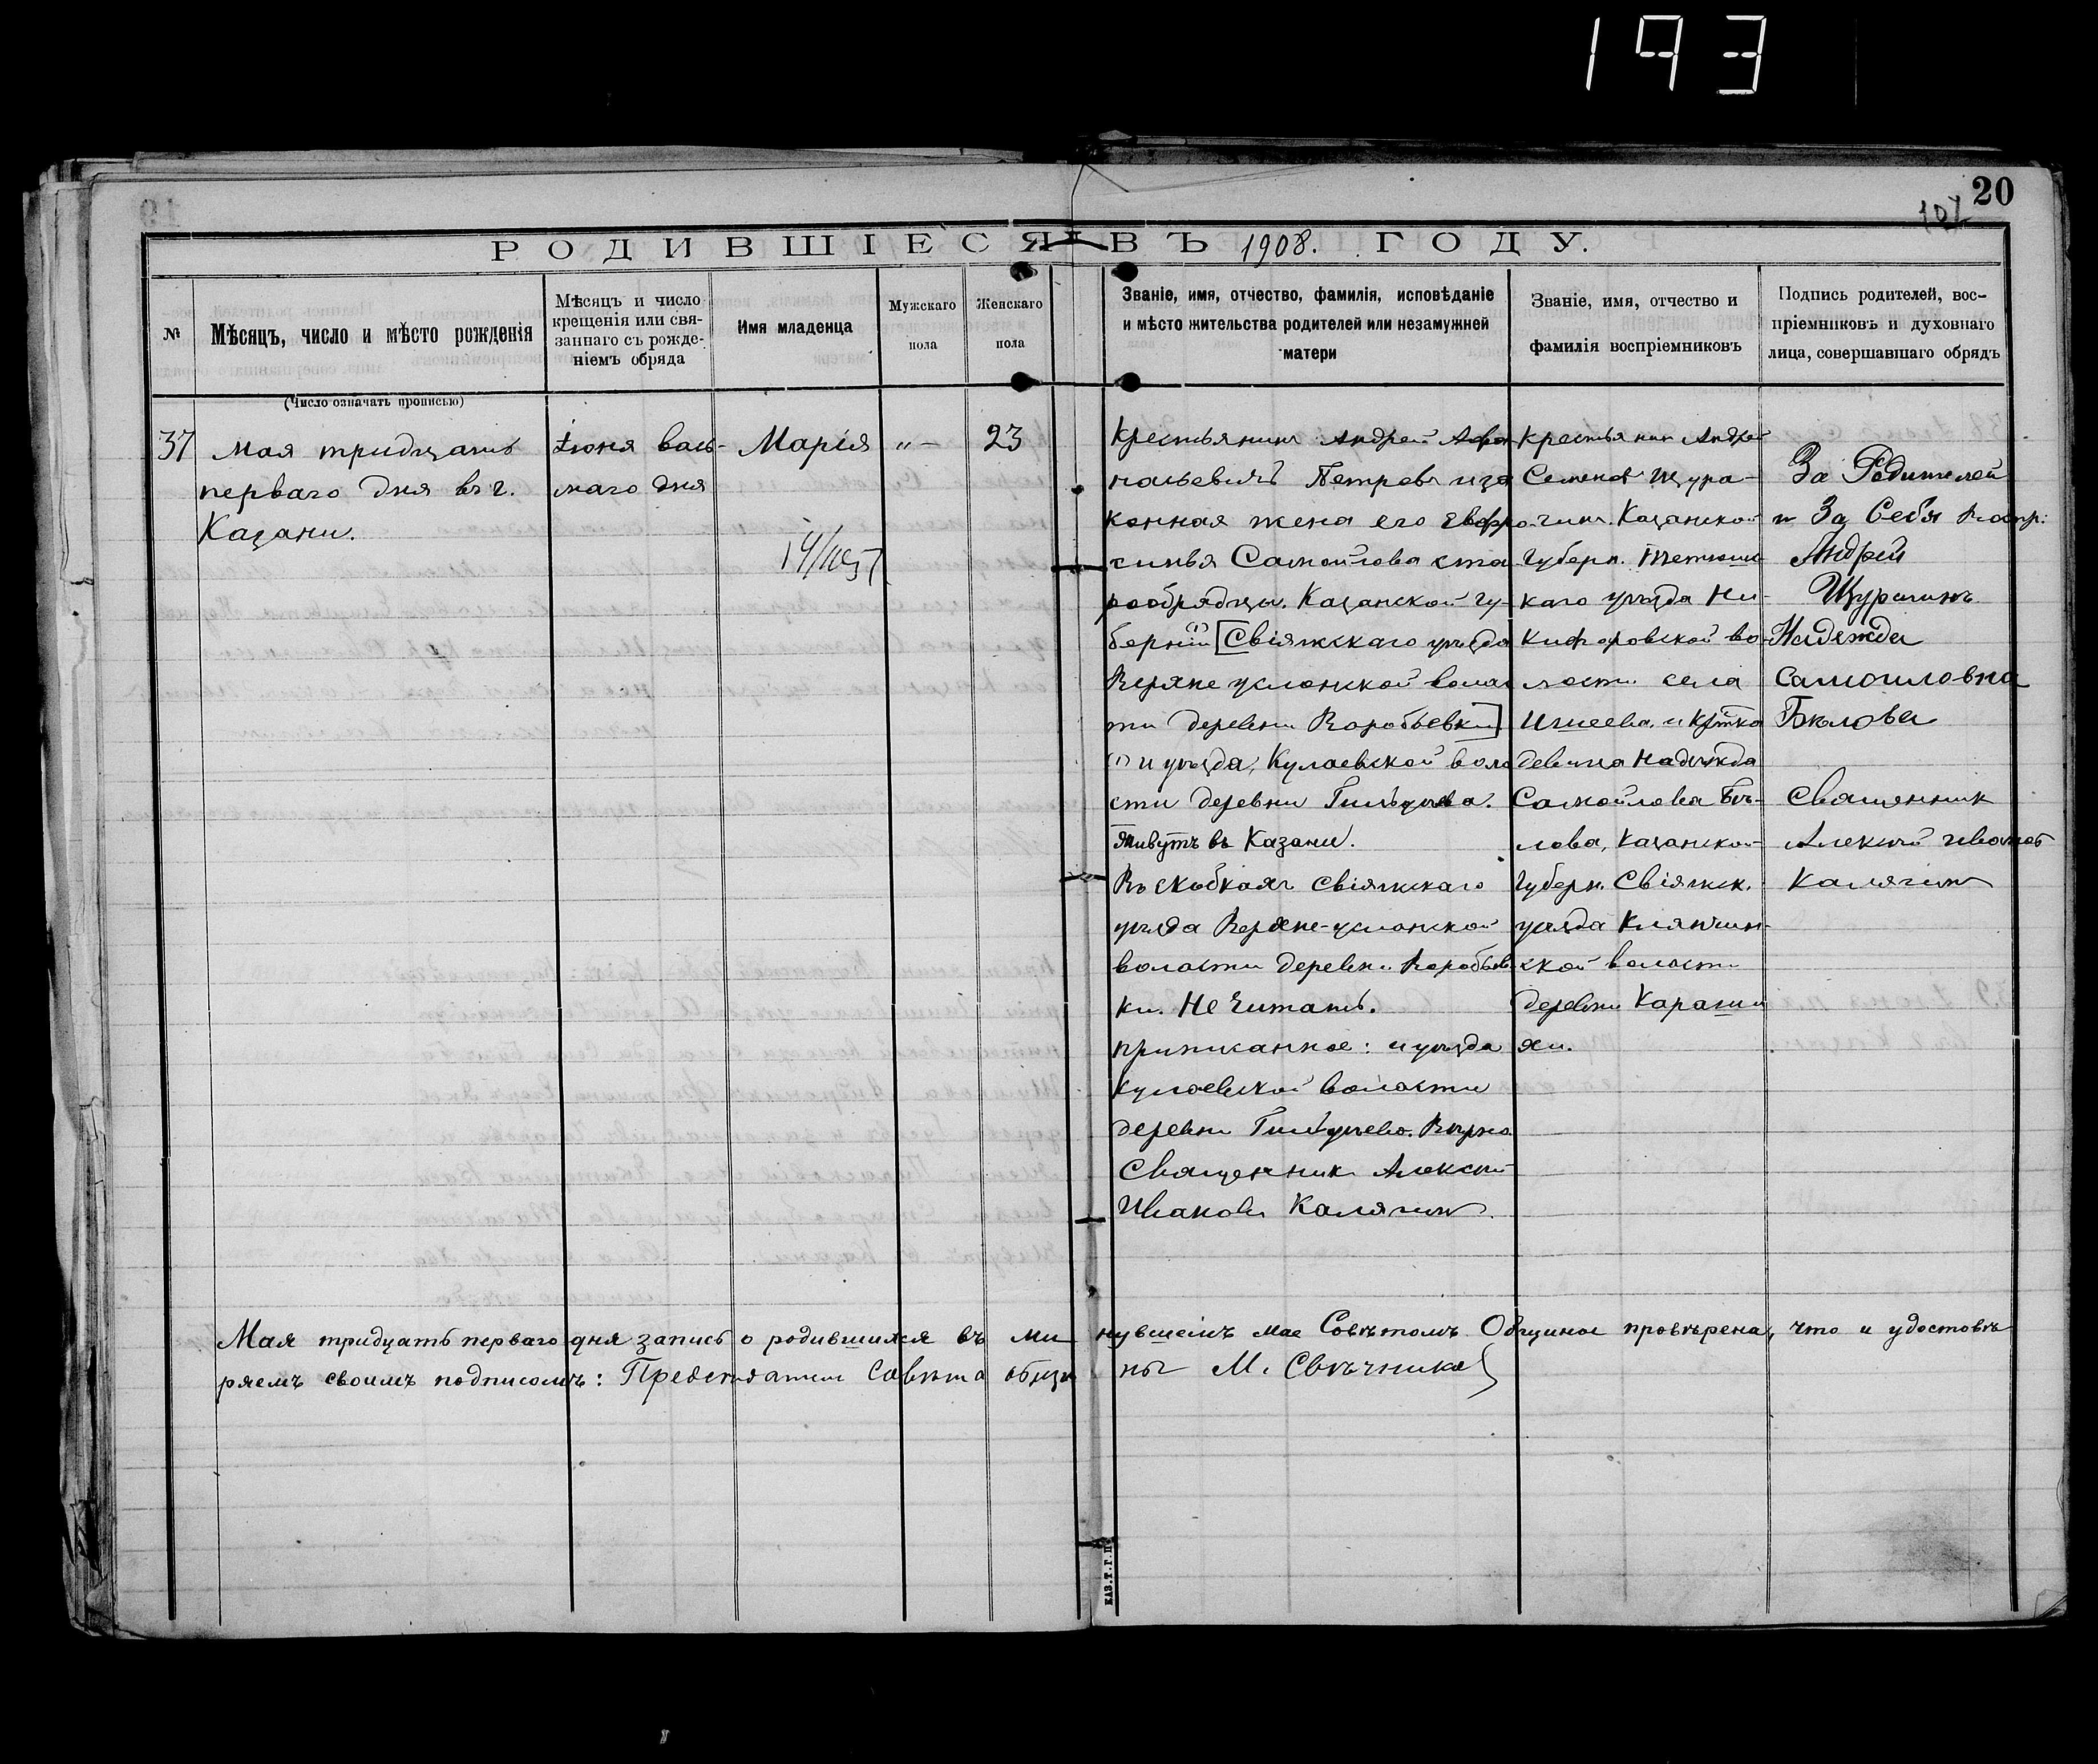 193
20
107
РОДИВШІЕСЯ ВЪ 1908. ГОДУ.
№
Мѣсяцъ, число и мѣсто рожденія
Мѣсяцъ и число
крещенія или свя-
заннаго съ рожде-
ніемъ обряда
Имя младенца
Мужскаго
пола
Женскаго
пола
Званіе, имя, отчество, фамилія, исповѣданіе
и мѣсто жительства родителей или незамужней
матери
Званіе, имя, отчество и
фамилія воспріемниковъ
Подпись родителей, вос-
пріемниковъ и духовнаго
лица, совершавшаго обрядъ
(Число означать прописью)
37
Мая тридцать
перваго дня въ г.
Казани.
Іюня вось-
маго дня
Марія
"–
23
Крестьянинъ Андрей Афа
насьевичъ Петровъ и за
конная жена его Евфро
синья Самойлова ста
рообрядцы. Казанской гу-
берніи [Свіяжскаго уѣзда
Верхне услонской волос
ти деревни Воробьевки]
(1) и уѣзда, Кулаевской воло
сти деревни Гильдѣева.
Живутъ въ Казани.
Въ скобкахъ Свіяжскаго
уѣзда Верхне-услонской
волости деревни Воробьев
ки. Не Читать.
приписанное: и уѣзда
Кулаевской волости
деревни Гильдѣево. Вѣрно
Священникъ Алексѣй
Ивановъ Калягинъ
Крестьянин Андрей
Семенов Щура-
гин. Казанской
Губерн. Тетюшс
каго уѣзда Ни-
кифоровской во-
лости села
и
девица Надежда
Самойлова Бѣ-
лова, Казанской
Губерн. Свіяжск.
уѣзда Клянчин-
ской волости
деревни Караши
хи.
За Родителей
и За Себя Воспр:
Андрей
Щурагинъ
Надежда
Самоиловна
Бѣлова
Священник
Алексѣй Иванов
Калягин
Мая тридцать перваго дня запись о родившихся въ ми нувшемъ мае Совѣтомъ Общиное провѣрена, что и удостовѣ
ряемъ своимъ подписомъ: Председатель Совѣта общи ны М. Свѣчников
КАЗ.Т.Г.П.